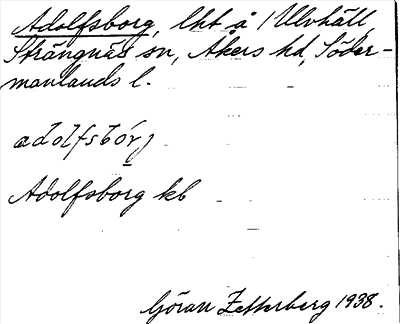 Adolfsborg, lht å 1 Ulvhäll,
Strängnäs sn, Åkers hd, Söder-
manlands l.
adolfsbórj
Adolfsborg kb
Göran Zetterberg 1938.